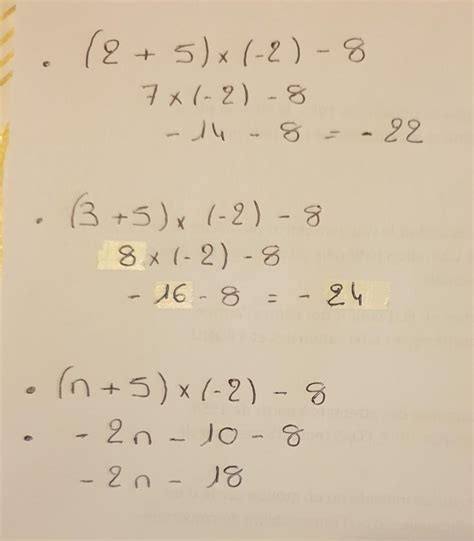 • (2 + 5) × (-2) - 8
7 × (-2) - 8
- 14 - 8 = - 22
• (3 + 5) × (-2) - 8
8 × (-2) - 8
- 16 - 8 = - 24
• (n + 5) × (-2) - 8
• - 2n - 10 - 8
- 2n - 18